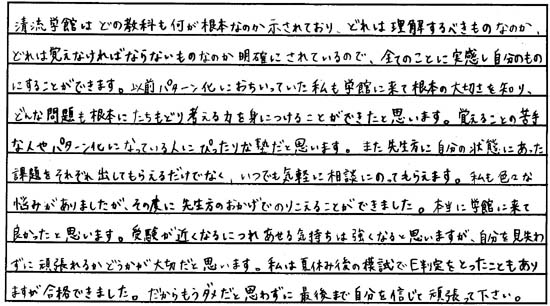 清流学館はどの教科も何が根本なのか示されており、どれは理解するべきものなのか、
どれは覚えなければならないものなのか明確にされているので、全てのことに実感し自分のもの
にすることができます。以前パターン化におちいっていた私も学館に来て根本の大切さを知り、
どんな問題も根本にたちもどり考える力を身につけることができたと思います。覚えることの苦手
な人やパターン化になっている人にぴったりな塾だと思います。また先生方に自分の状態にあった
課題をそれぞれ出してもらえるだけでなく、いつでも気軽に相談にのってもらえます。私も色々な
悩みがありましたが、その度に先生方のおかげでのりこえることができました。本当に学館に来て
良かったと思います。受験が近くなるにつれあせる気持ちは強くなると思いますが、自分を見失わ
ずに頑張れるかどうかが大切だと思います。私は夏休み後の模試でE判定をとったこともあり
ますが合格できました。だからもうダメだと思わずに最後まで自分を信じて頑張って下さい。